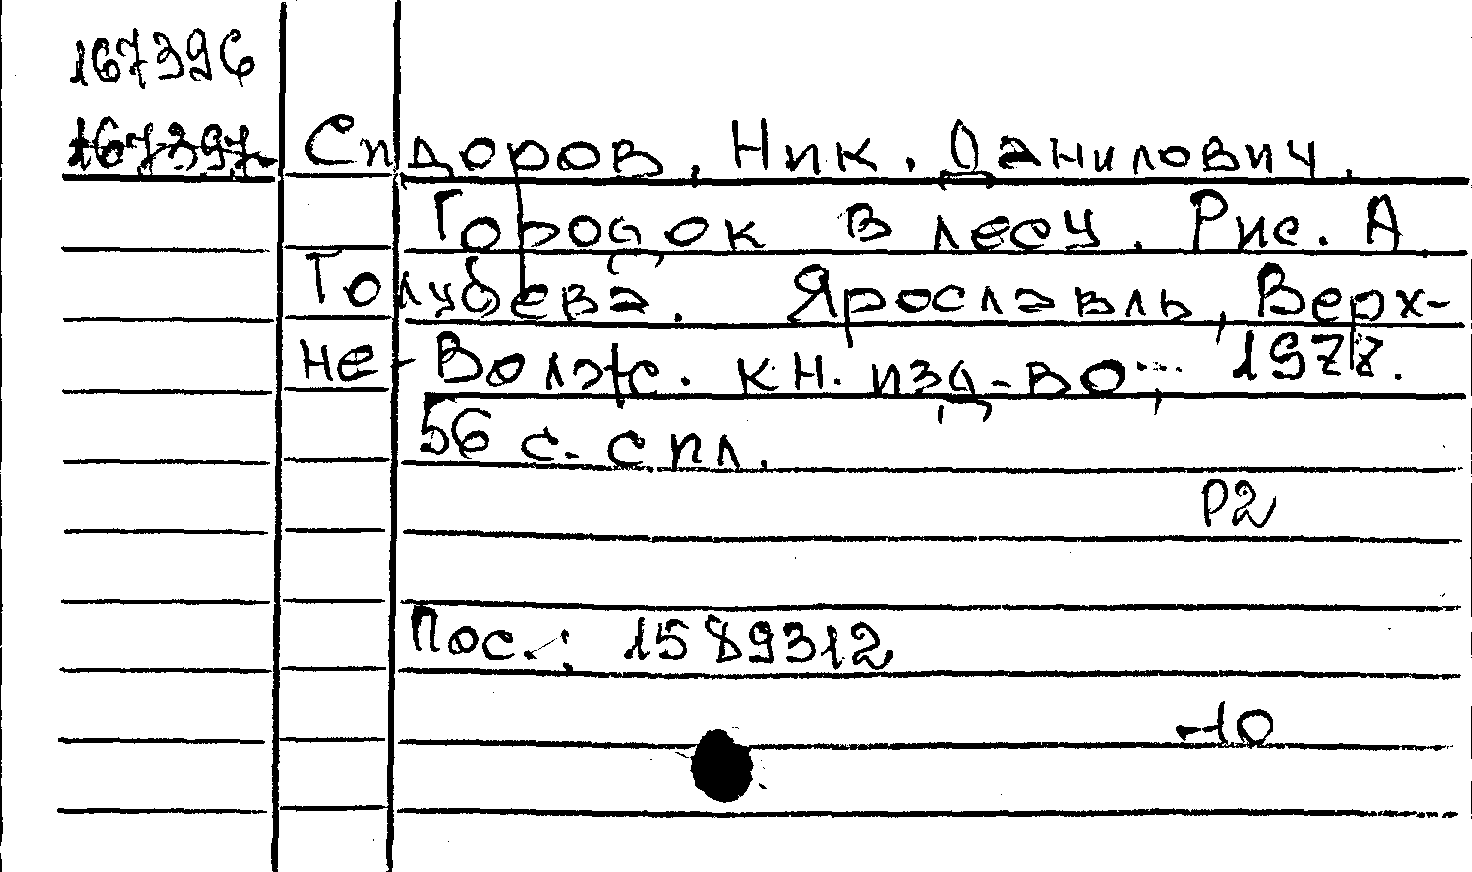 167396
167397 Сидоров, Ник. Данилович.
Городок в лесу. Рис. А.
Голубева. Ярославль, Верх-
не-Волж. кн. изд-во, 1977.
56 с. с ил.
Р2
Пос.: 1589312
-10